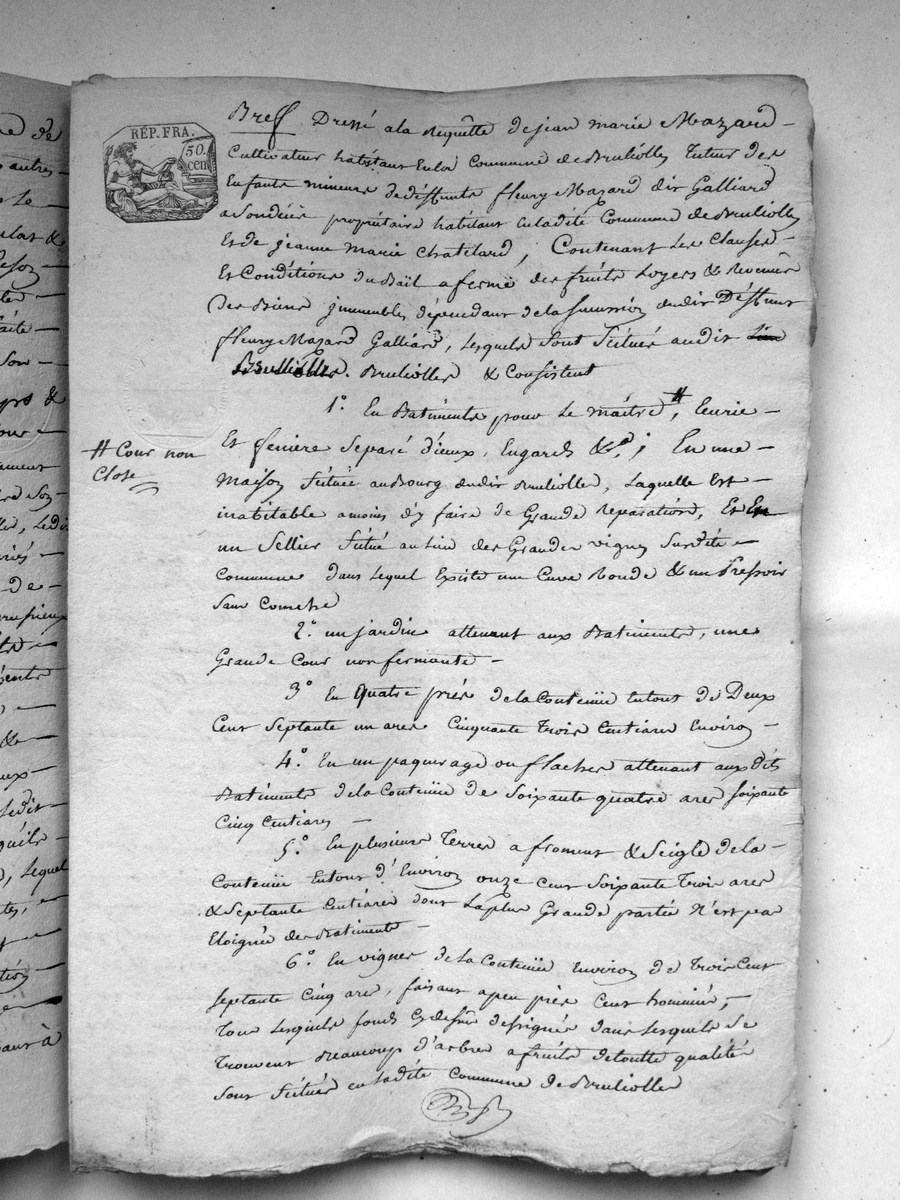 RÉP. FRA.
50.
cen
Bref Dressé a la Requêtte de jean marie Mazard —
Cultivateur habitant Enla Commune de Brulioller Tuteur des
Enfants mineurs de deffunts fleury Mazard dit Galliard
propriétaire habitant enladite Commune de Brulioller
Et de jeanne marie Chatelard ; Contenant les Clauses —
Et Conditions du Bail a ferme des fruits Loyers & Revenus
Des Biens jmmeubles dépendant de la succession dudit Deffunt
fleury Mazard Galliard, lesquels sont situés audit
Brulioller & Consistent
1.° En Batiments pour le maitre #, Ecurie —
# Cour non
Close
Et feniere separé d'jceux, Engards &ª ; En une —
maison située au Bourg dudit Brulioller, laquelle Est —
inabitable amoins d'y faire de Grande Reparations, Et
un Sellier situé au lieu des Grandes vignes Surdite —
Commune dans lequel Existe une Cuve Ronde & un Pressoir
Sans
2.° un jardin attenant aux Batiments, une
Grande Cour non fermante —
3.° En quatre prés de la Contenüe entout de Deux
Cent Septante un ares Cinquante Trois Centiares Environ —
4.° En un paquerage ou flacher attenant aux dits
Batiments de la Contenüe de Soixante quatre ares soixante
Cinq Centiares —
5.° En plusieurs Terres a froment & Seigle de la —
Contenüe Entout d'Environ onze cent Soixante Trois ares
& Septante Centiares dont la plus Grande partie N'est pas
Eloignée des Batiments —
6.° En vignes de la Contenüe Environ de Trois Cent
septante Cinq ares, faisant apeu près Cent hommées, —
Tous lesquels fonds Cydessus designés dans lesquels se
Trouvent Beaucoup d'arbres a fruits de toutte qualités
Sont situés en ladite Commune de Brulioller